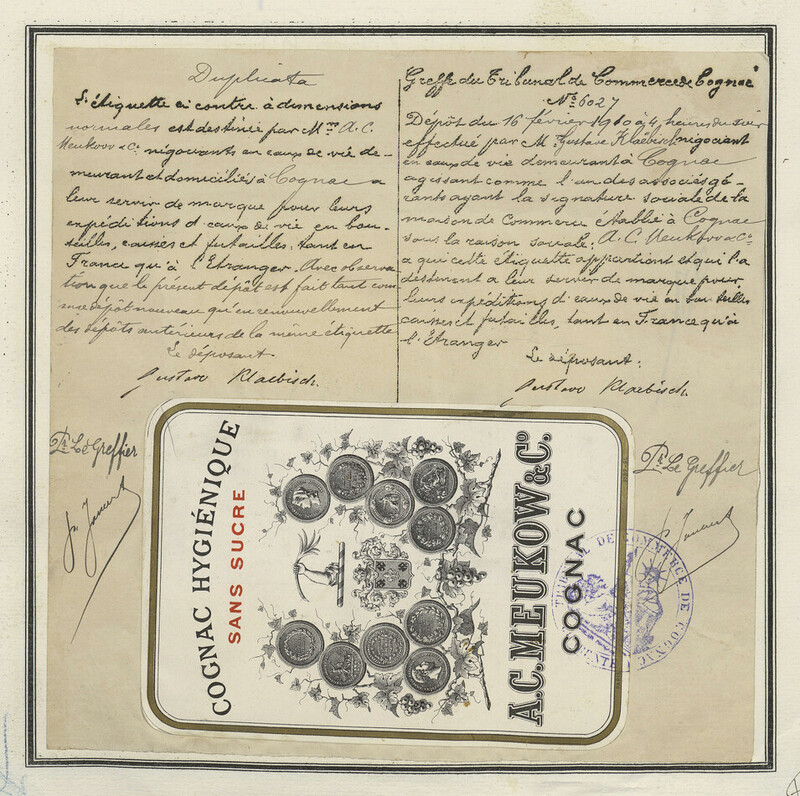 Duplicata
L'étiquette ci contre à dimensions
normales est destinée par M.rs A.C.
Meukow & Co. négociants en eaux de vie de-
meurant et domiciliés à Cognac a
leur servir de marque pour leurs
expéditions d'eaux de vie en bou-
teilles, caisses et futailles, tant en
France qu'à l'Etranger. Avec observa-
tion que le présent dépôt est fait tant com-
me dépôt nouveau qu'en renouvellement
des dépôts antérieurs de la même étiquette
Le déposant.
Gustave Klaebisch.
Pr. Le Greffier
Greffe du Tribunal de Commerce de Cognac
No. 6027
Dépôt du 16 février 1910 à 4 heures du soir
effectué par M. Gustave Klaëbisch négociant
en eaux de vie demeurant à Cognac
agissant comme l'un des associés gé-
rants ayant la signature sociale de la
maison de Commerce établie à Cognac
sous la raison sociale: A.C. Meukow & Co.
a qui cette étiquette appartient et qui l'a
destinent a leur servir de marque pour
leurs expéditions d'eaux de vie en bouteilles
caisses et futailles, tant en France qu'à
l'Etranger
Le déposant:
Gustave Klaebisch.
Pr. Le Greffier
COGNAC HYGIÉNIQUE
SANS SUCRE
A.C. MEUKOW & Co.
COGNAC
TRIBUNAL DE COMMERCE DE COGNAC